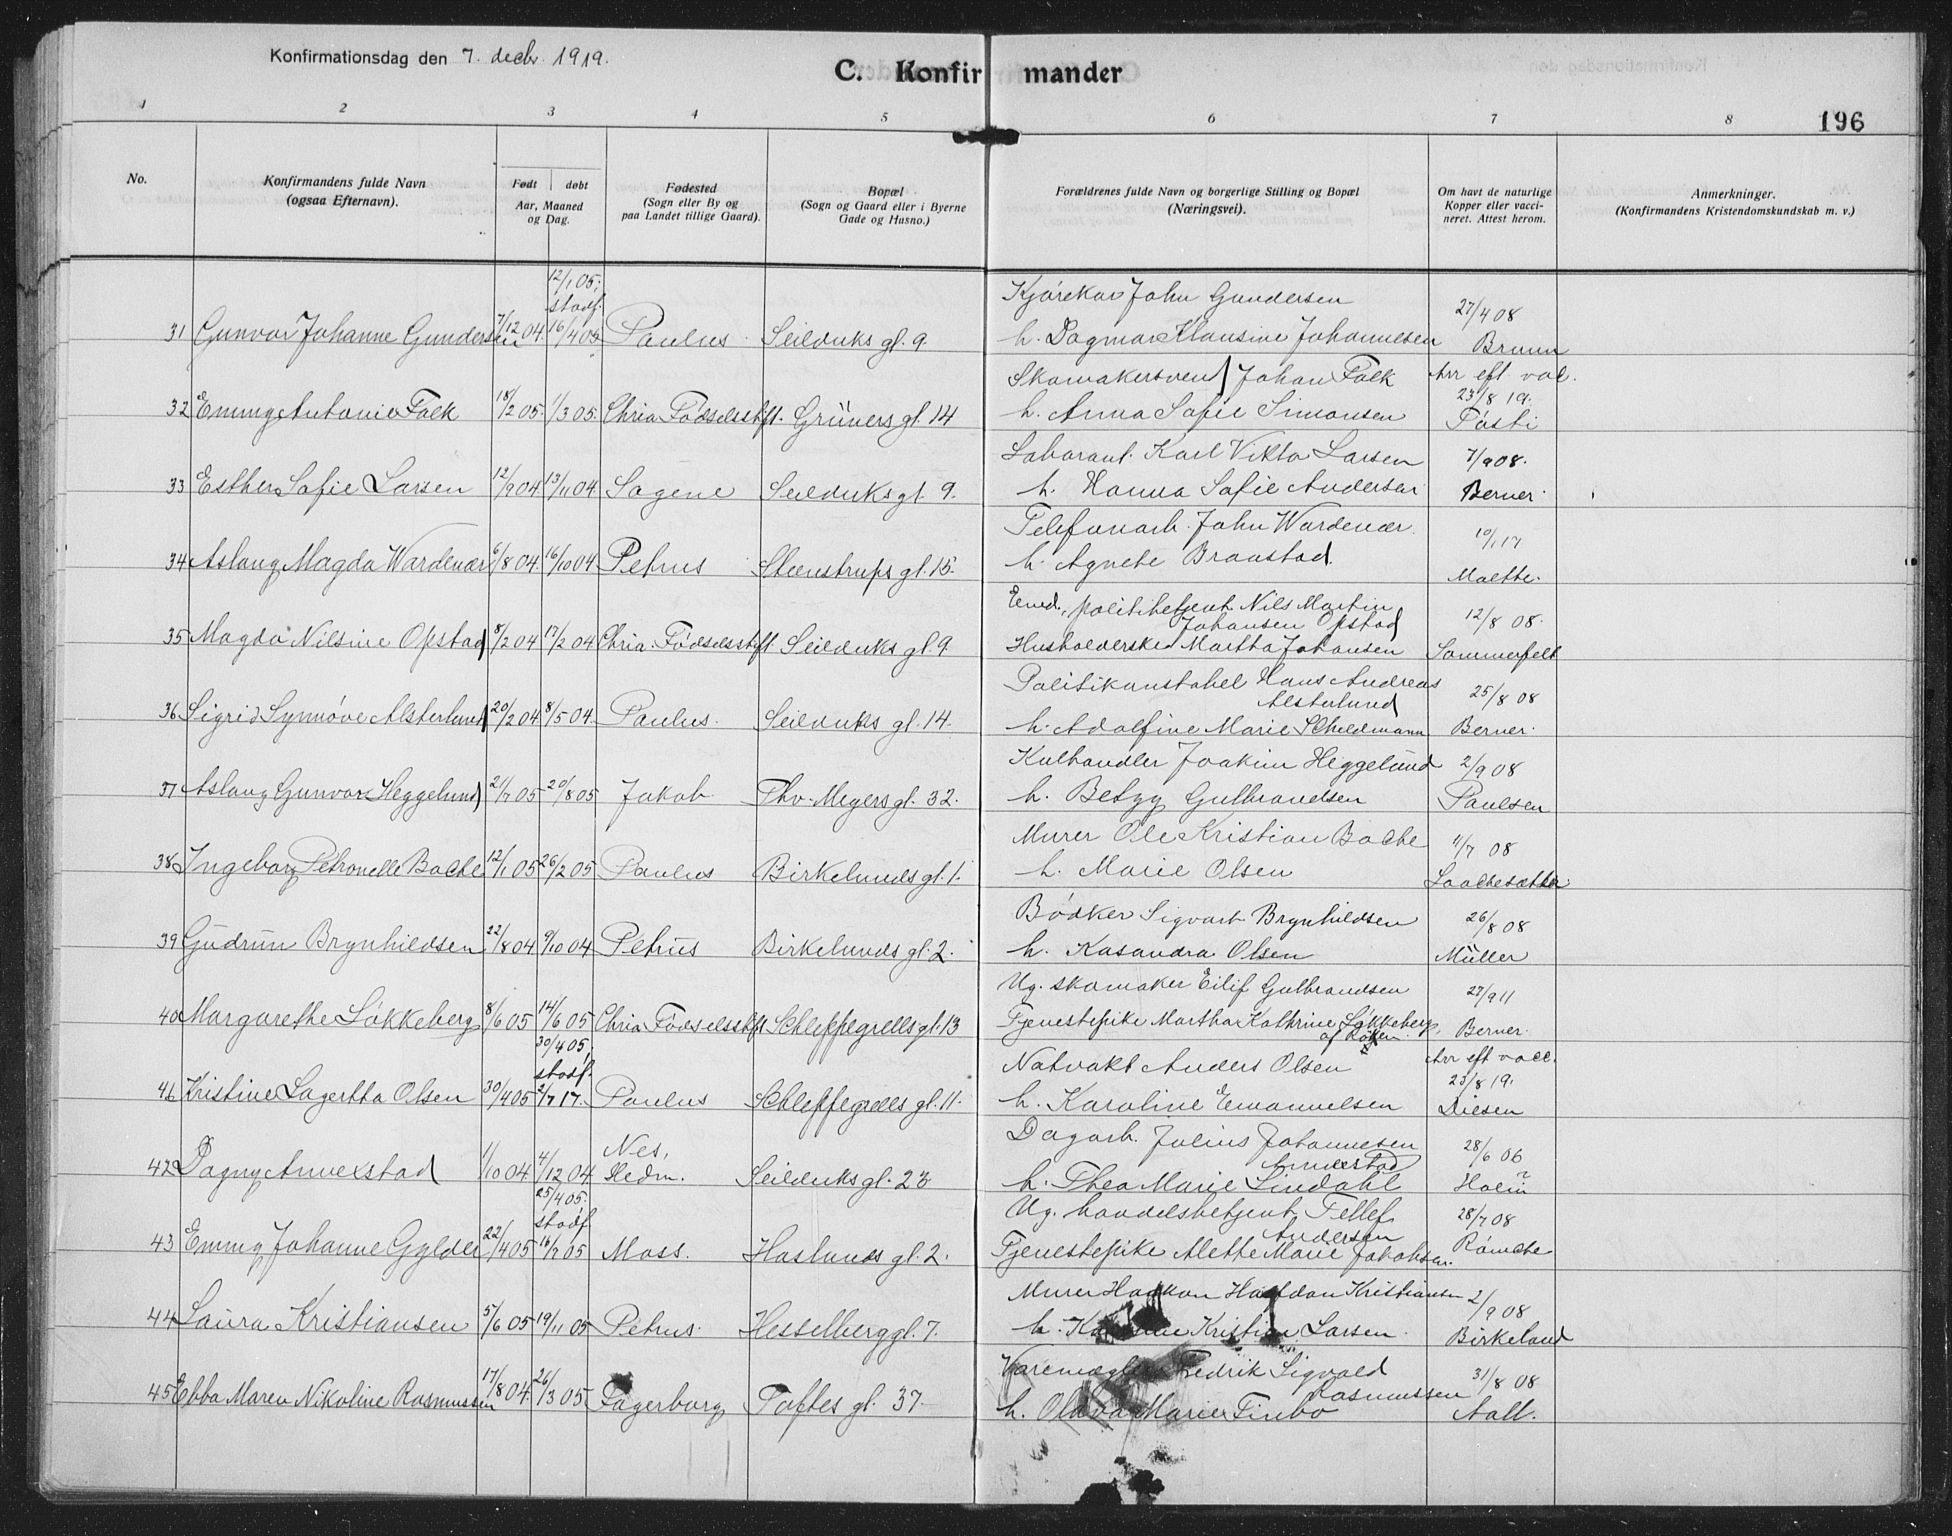 Konfirmationsdag den 7. decbr. 1919.
C. Konfirmander
196
1 2 3 4 5 6 7 8
No.
Konfirmandens fulde Navn
(ogsaa Efternavn).
Født døbt
Aar, Maaned
og Dag.
Fødested
(Sogn eller By og
paa Landet tillige Gaard).
Bopæl
(Sogn og Gaard eller i Byerne
Gade og Husno.)
Forældrenes fulde Navn og borgerlige Stilling og Bopæl
(Næringsvei).
Om havt de naturlige
Kopper eller vacci-
neret. Attest herom.
Anmerkninger.
(Konfirmandens Kristendomskundskab m. v.)
12/1 05;
stadf.
Kjørekar John Gundersen 27/4 08
31 Gunvor Johanne Gundersen 7/12 04. 16/4 05 Paulus Seilduks gt. 9. h. Dagmar Klausine Johannesen Bruun
Skomakersvend Johan Falk Arr eft. vac.
23/8 19.
32 Emmy Antonie Falk 18/2 05. 1/3 05. Chria Fødselsstift. Grüners gt. 14 h. Anna Sofie Simonsen Føsti
Laborant. Karl Viktor Larsen 7/9 08.
33 Esther Sofie Larsen 12/9 04 13/11 04 Sagene Seilduks gt. 9. h. Hanna Sofie Andersen Berner.
Telefonarb. John Wardenær. 10/1 17
34 Aslaug Magda Wardenær 6/8 04. 16/10 04 Petrus Steenstrups gt. 15. h. Agnete Braastad. Malthe.
Eend. politibetjent Nils Martin
Johansen Opstad 12/8 08.
35 Magda Nilsine Opstad 8/2 04 17/2 04 Chria. Fødselsstift Seilduks gt. 9 Husholderske Martha Johansen Sommerfelt
Politikonstabel Hans Andreas
Alsterlund 25/8 08
36 Sigrid Synnøve Alsterlund 20/2 04 8/5 04. Paulus. Seilduks gt. 14. h. Adolfine Marie Scheldmann Berner.
Kulhandler Joakim Heggelund 2/9 08
37 Aslaug Gunvor Heggelund 21/7 05 20/8 05 Jakob Thv. Meyers gt. 32. h. Betzy Gulbrandsen Paulsen
Murer Ole Kristian Bache 11/7 08
38 Ingeborg Petronelle Bache 12/1 05 26/2 05 Paulus Birkelunds gt. 1. h. Marie Olsen
Bødker Sigvart Brynhildsen 26/8 08
39 Gudrun Brynhildsen 22/8 04 9/10 04 Petrus Birkelunds gt. 2. h. Kasandra Olsen Müller
Ug. skomaker Eilif Gulbrandsen 27/9 11
40 Margarethe Løkkeberg 8/6 05 14/6 05 Chria Fødselsstift Schleppegrells gt. 13 Tjenestepike Martha Kathrine Løkkeberg, Berner.
af Røken
30/4 05,
stadf.
Natvakt Anders Olsen Arr eft vacc.
23/8 19.
46 Kristine Lagertha Olsen 30/4 05 2/7 17. Paulus Schleppegrells gt. 11. h. Karoline Emanuelsen Diesen
Dagarb. Julius Johannesen
Annerstad 28/6 06
Nes,
42 Dagny Annerstad 1/10 04 4/12 04 Hedm. Seilduks gt. 23 h. Thea Marie Lindahl Holm
25/4 05.
stadf
Ug. handelsbetjent Tellef
Andersen 28/7 08
43 Emmy Johanne Gylder 22/4 05 16/7 05 Moss. Haslunds gt. 2. Tjenestepike Alette Marie Jakobsen. Rømcke
Murer Haakon Halfdan Kristiansen 2/9 08
44 Laura Kristiansen 5/6 05 19/11 05 Petrus. Hesselberg gt. 7. h. Kristine Larsen. Birkeland
Varemægler Fredrik Sigvald
Rasmussen 31/8 08
45 Ebba Maren Nikoline Rasmussen 17/8 04. 26/3 05 Fagerborg Toftes gt. 37. h. Olava Marie Finbo Aall.